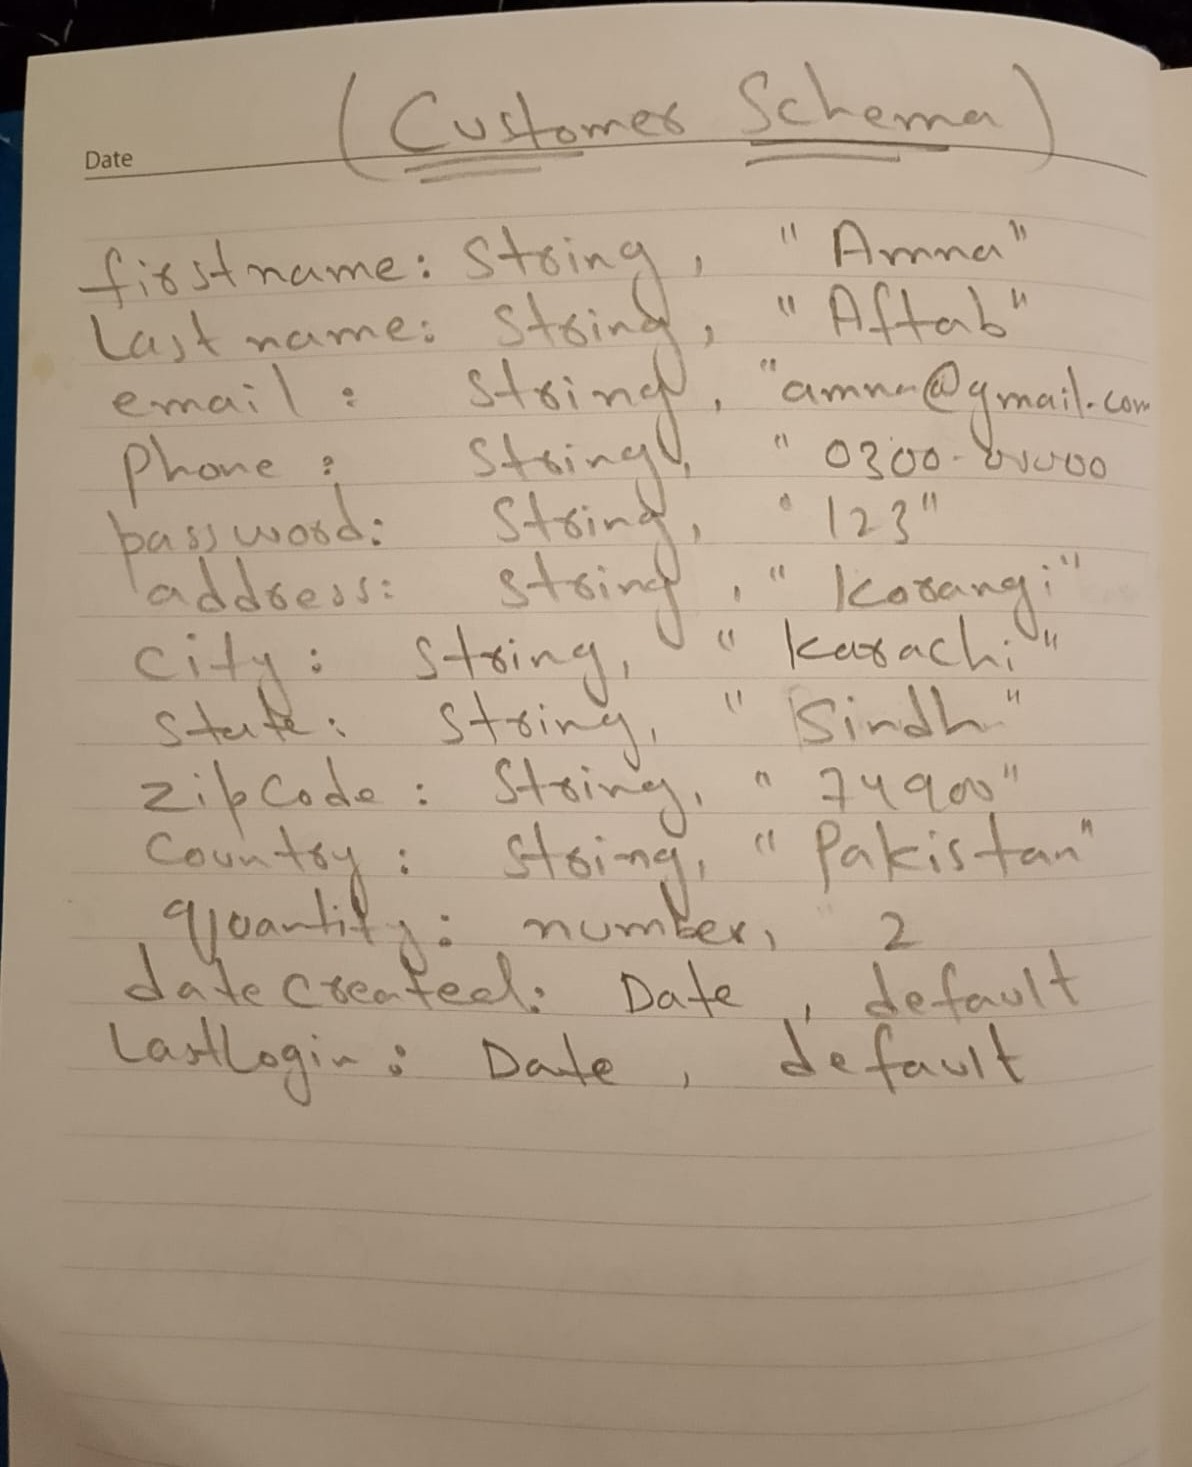 (Customer Schema)
Date
firstname: String, "Amna"
Last name: String, "Aftab"
email: String, "amna@gmail.com
Phone: String, "0300-
password: String, "123"
address: String, "Korangi"
City: String, "Karachi"
State: String, "Sindh"
zipCode: String, "74900"
Country: String, "Pakistan"
quantity: number, 2
dateCreated: Date, default
LastLogin: Date, default